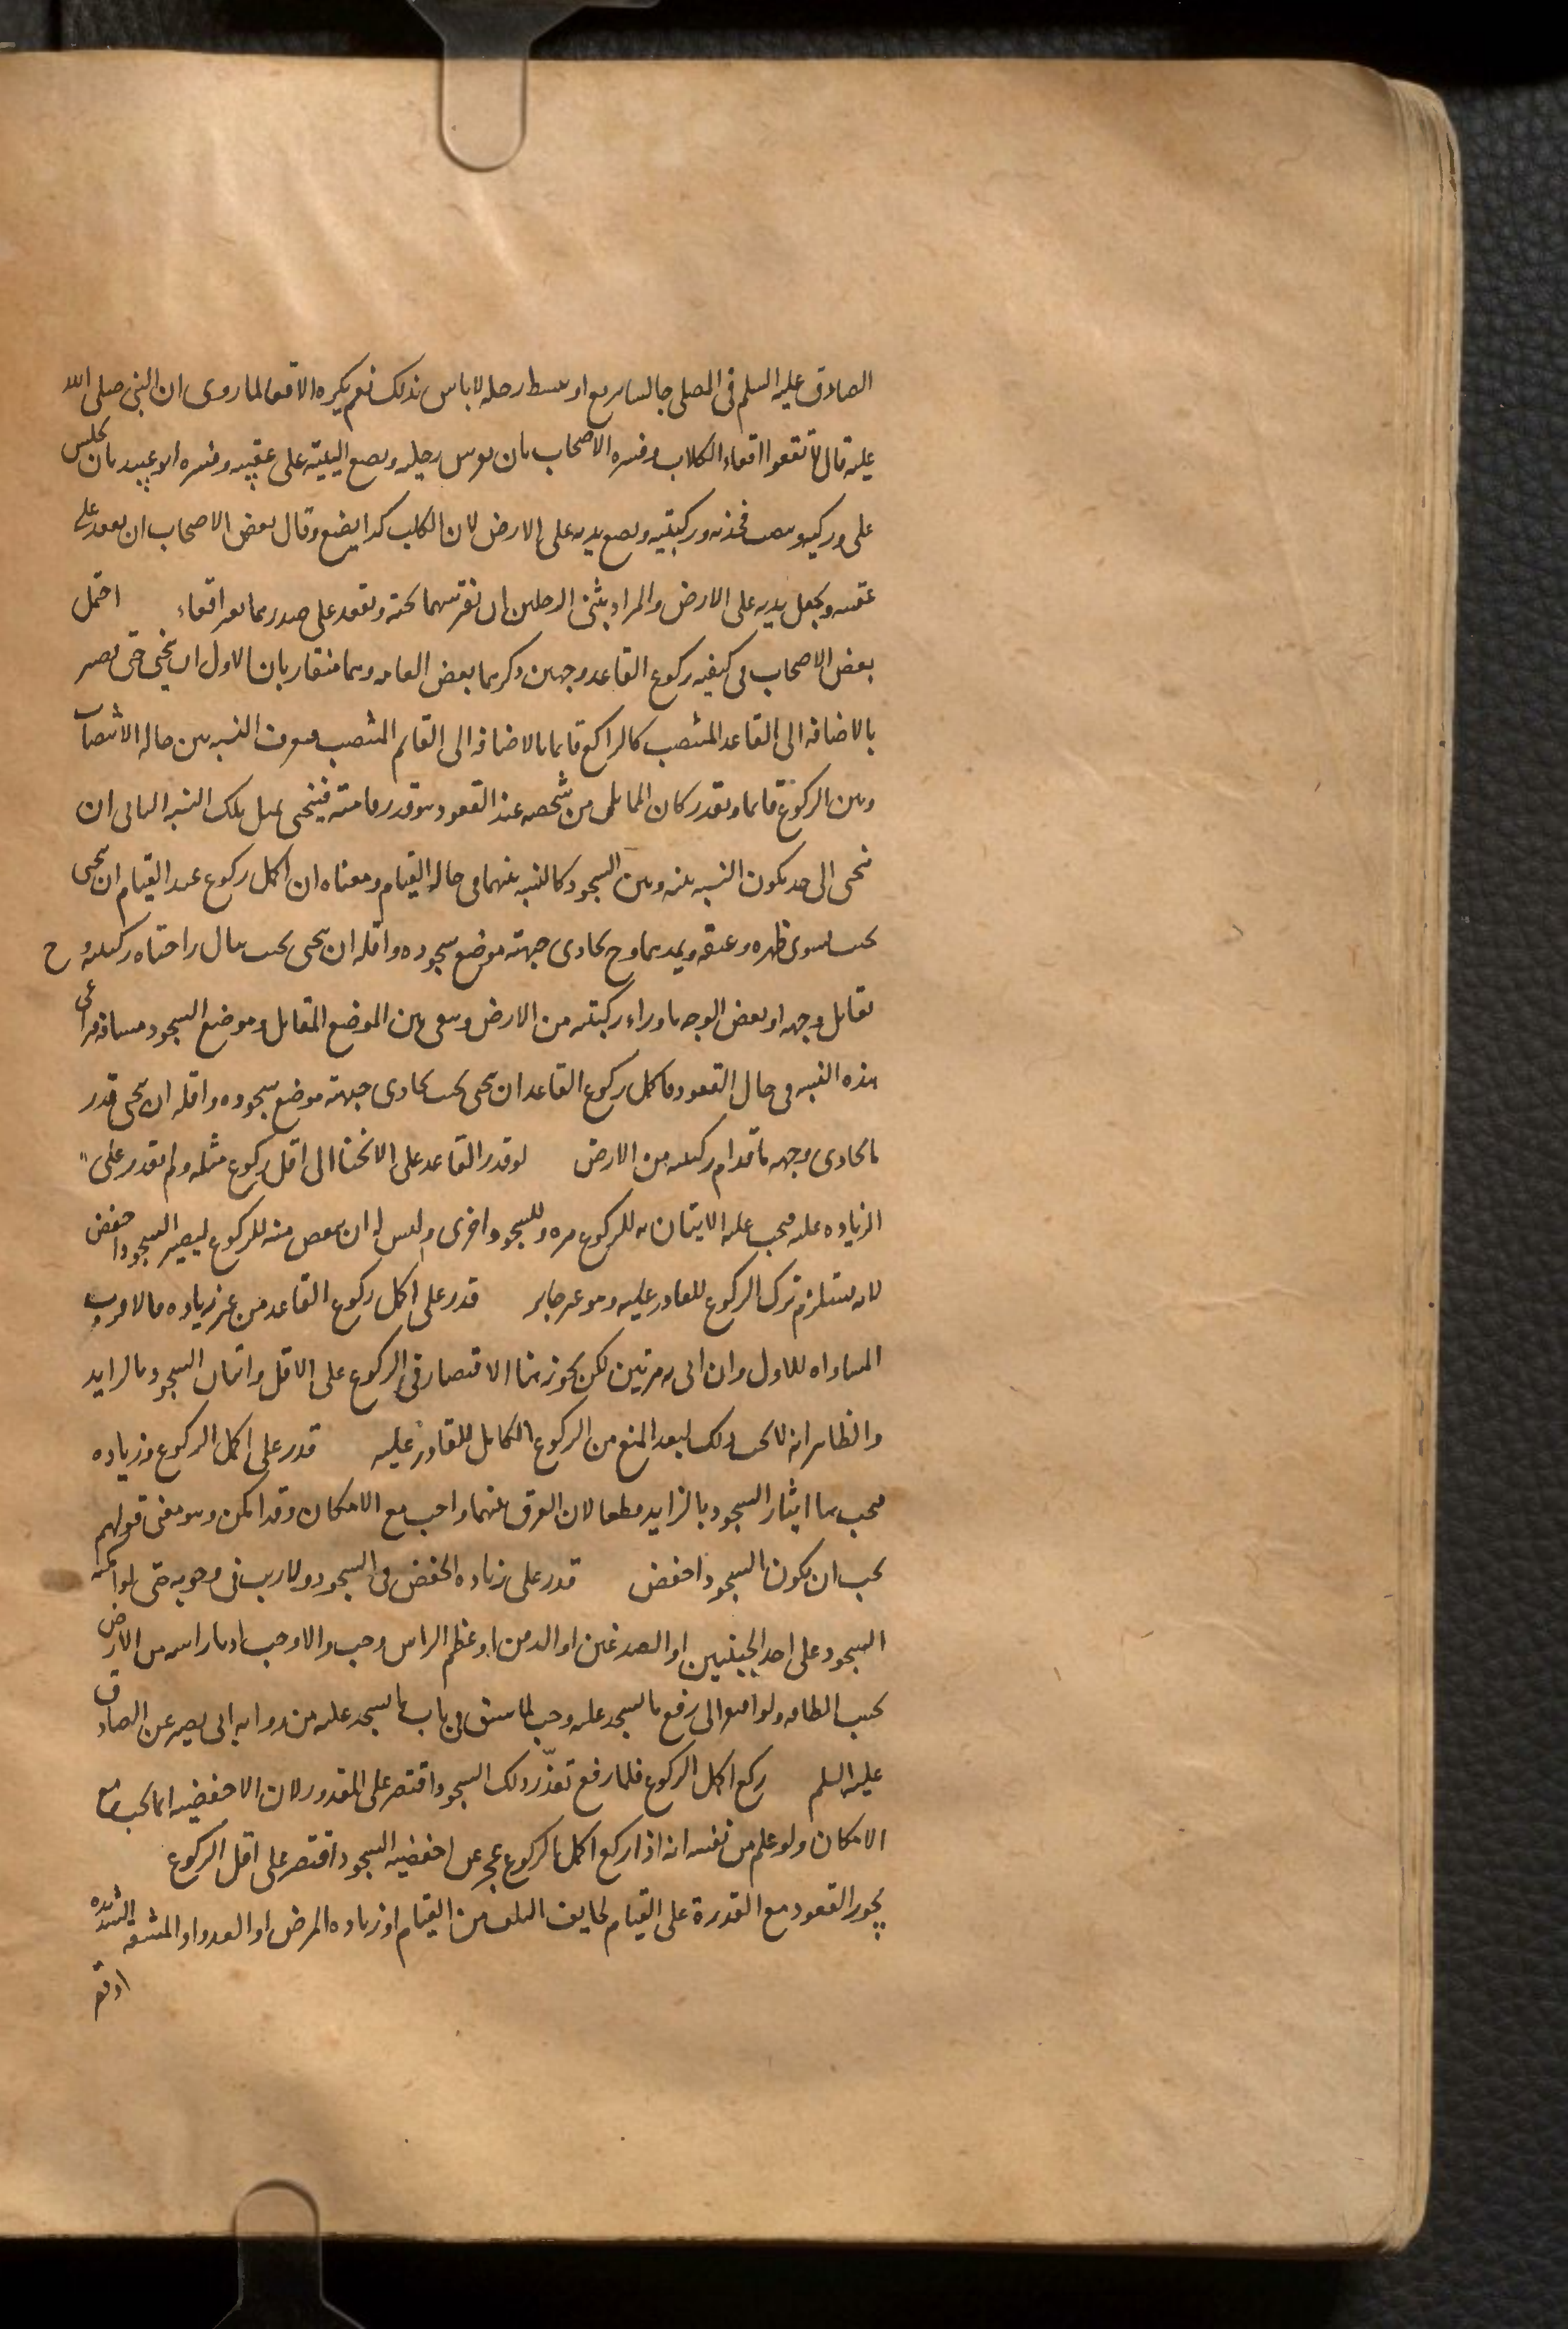 الصادق عليه السلم فى المصلى جالسا يتربع او يبسط رجليه لا باس بذلك نعم يكره الاقعاء لما روى ان النبى صلى الله
عليه قال لا تقعوا اقعاء الكلاب وفسره الاصحاب بان يفرش رجليه ويضع اليتيه على عقبيه وفسره ابو عبيد بان يجلس
على وركيه وينصب فخذيه وركبتيه ويضع يديه على الارض لان الكلب كذا يضع وقال بعض الاصحاب ان يقعد على
عقبيه ويجعل يديه على الارض والمراد بثنى الرجلين ان يفرشهما تحته ويقعد على صدرهما بغير اقعاء احتمل
بعض الاصحاب فى كيفيه ركوع القاعد وجهين ذكرهما بعض العامه وهما متقاربان الاول ان ينحنى حتى يصير
بالاضافه الى القاعد المنتصب كالراكع قايما بالاضافه الى القايم المنتصب فيعرف النسبه بين حاله الانتصاب
وبين الركوع قايما ويقدر كان المايل من شخصه عند القعود هو قدر قامته فينحنى بمثل تلك النسبه الثانى ان
ينحنى الى حد يكون النسبه بينه وبين السجود كالنسبه بينهما فى حال القيام ومعناه ان اكمل ركوع عند القيام ان ينحنى
بحيث يستوى ظهره وعنقه ويمدهما وح يحاذى جبهته موضع سجوده واقله ان ينحنى بحيث ينال راحتاه ركبتيه وح
يقابل وجهه او بعض الوجه ما وراء ركبتيه من الارض ويبقى بين الموضع المقابل وموضع السجود مسافه فيراعى
هذه النسبه فى حال القعود فاكمل ركوع القاعد ان ينحنى بحيث يحاذى جبهته موضع سجوده واقله ان ينحنى قدر
ما يحاذى وجهه ما قدام ركبتيه من الارض لو قدر القاعد على الانحنا الى اقل ركوع مثله ولم يقدر على
الزياده عليه فيجب عليه الاتيان به للركوع مره وللسجود اخرى وليس له ان ينقص منه للركوع ليصير السجود اخفض
لانه يستلزم ترك الركوع للقادر عليه وهو غير جايز قدر على اكمل ركوع القاعد من غير زياده فالاقرب
المساواه للاول وان اتى به مرتين لكن يجوز هنا الاقتصار فى الركوع على الاقل واتيان السجود بالزايد
والظاهر انه لا يجب ذلك لبعد المنع من الركوع الكامل للقادر عليه قدر على اكمل الركوع وزياده
فيجب هنا ايثار السجود بالزايد مطلقا لان الفرق بينهما واجب مع الامكان وقد امكن وهو معنى قولهم
يجب ان يكون السجود اخفض قدر على زياده الخفض فى السجود ولا ريب فى وجوبه حتى لو امكنه
السجود على احد الجبينين او الصدغين او الذقن او عظم الراس وجب والا وجب ادناء راسه من الارض
بحسب الطاقه ولو افتقر الى رفع ما يسجد عليه وجب لما سبق فى باب ما يسجد عليه من روايه ابى بصير عن الصادق
عليه السلم ركع اكمل الركوع فلما رفع تعذر ذلك السجود اقتصر على المقدور لان الاخفضيه انما تجب مع
الامكان ولو علم من نفسه انه اذا ركع اكمل الركوع عجز عن اخفضيه السجود اقتصر على اقل الركوع
يجوز القعود مع القدرة على القيام لخايف التلف من القيام او زياده المرض او العدو او المشقه الشديده